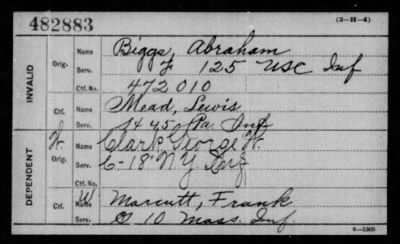 482883
(3-H-4)
INVALID
Orig.
Name Biggs, Abraham
Serv. F 125 USC Inf
Ctf. No. 472010
Ctf.
Name Mead, Lewis
Serv. 45 Pa Inf
DEPENDENT
W.
Orig.
Name Clark, George W.
Serv. C-18" N.Y. Inf
Ctf. No.
W
Ctf.
Name Marcutt, Frank
Serv. G 10 Mass. Inf
6-1303